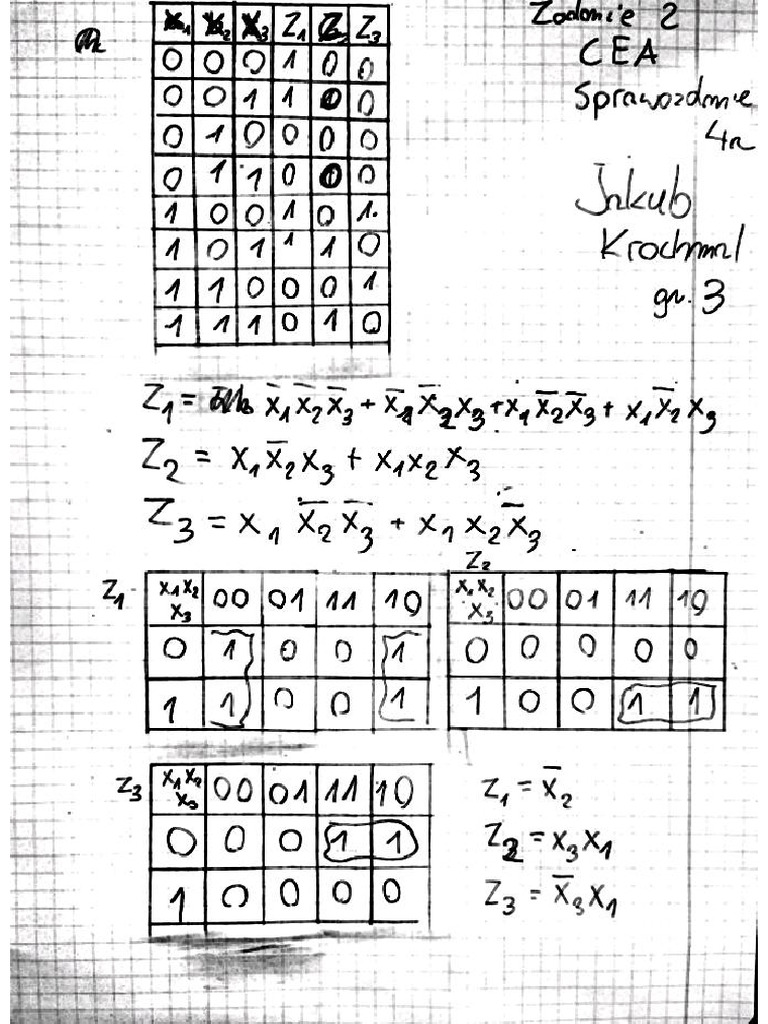 Zadanie 2
CEA
Sprawozdanie
4a
Jakub
Krochmal
gr. 3
X₁ X₂ X₃ Z₁ Z₂ Z₃
0 0 0 1 0 0
0 0 1 1 0 0
0 1 0 0 0 0
0 1 1 0 0 0
1 0 0 1 0 1
1 0 1 1 1 0
1 1 0 0 0 1
1 1 1 0 1 0
Z₁ = x̅₁x̅₂x̅₃ + x̅₁x̅₂x₃ + x₁x̅₂x̅₃ + x₁x̅₂x₃
Z₂ = x₁x̅₂x₃ + x₁x₂x₃
Z₃ = x₁x̅₂x̅₃ + x₁x₂x̅₃
Z₁ x₁x₂ x₃ 00 01 11 10
0 1 0 0 1
1 1 0 0 1
Z₂
x₁x₂ x₃ 00 01 11 10
0 0 0 0 0
1 0 0 1 1
Z₃ x₁x₂ x₃ 00 01 11 10
0 0 0 1 1
1 0 0 0 0
Z₁ = x̅₂
Z₂ = x₃x₁
Z₃ = x̅₃x₁